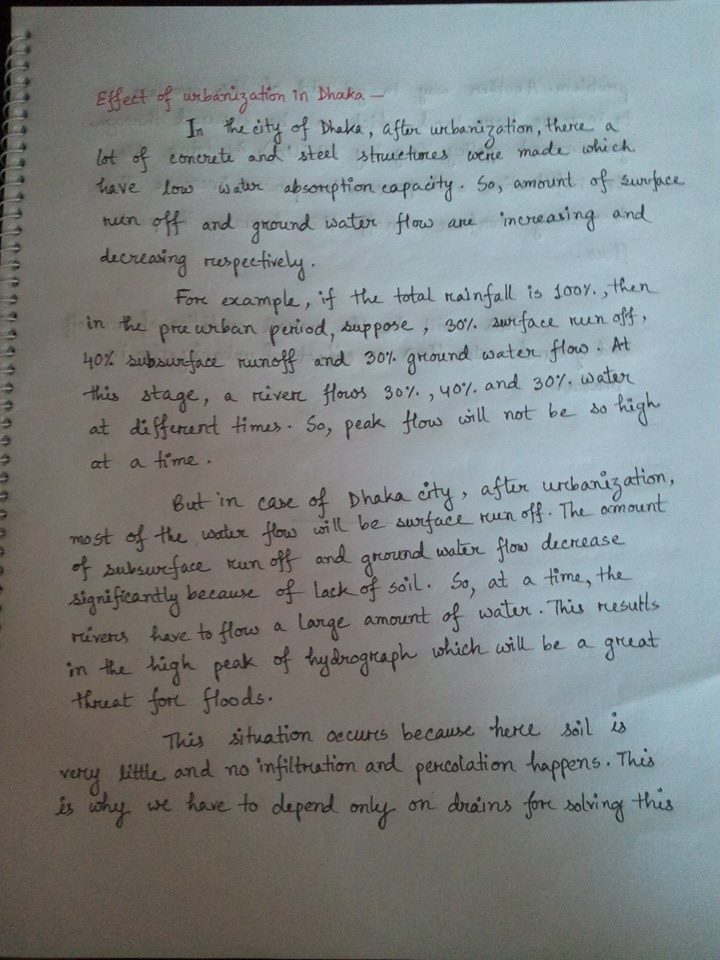 Effect of urbanization in Dhaka —
In the city of Dhaka, after urbanization, there a
lot of concrete and steel structures were made which
have low water absorption capacity. So, amount of surface
run off and ground water flow are increasing and
decreasing respectively.
For example, if the total rainfall is 100%, then
in the pre urban period, suppose, 30% surface run off,
40% subsurface runoff and 30% ground water flow. At
this stage, a river flows 30%, 40% and 30% water
at different times. So, peak flow will not be so high
at a time.
But in case of Dhaka city, after urbanization,
most of the water flow will be surface run off. The amount
of subsurface run off and ground water flow decrease
significantly because of lack of soil. So, at a time, the
rivers have to flow a large amount of water. This results
in the high peak of hydrograph which will be a great
threat for floods.
This situation occurs because here soil is
very little and no infiltration and percolation happens. This
is why we have to depend only on drains for solving this